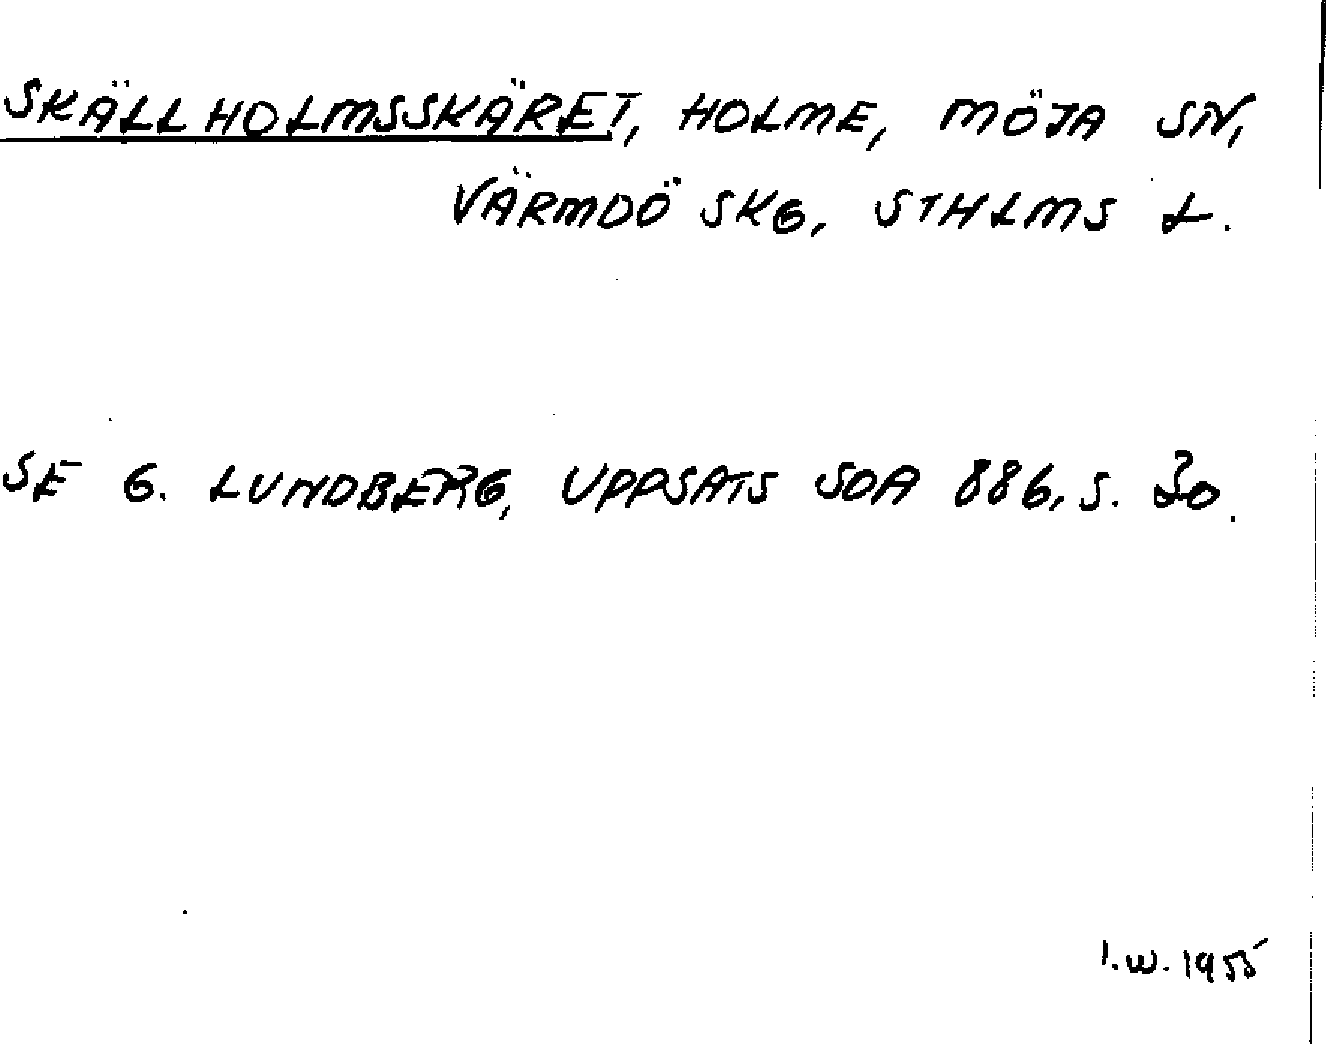 SKÄLLHOLMSSKÄRET, HOLME, MÖJA SN,
VÄRMDÖ SKG, STHLMS L.
SE G. LUNDBERG, UPPSATS SOA 886, S. 30.
I.W. 1955